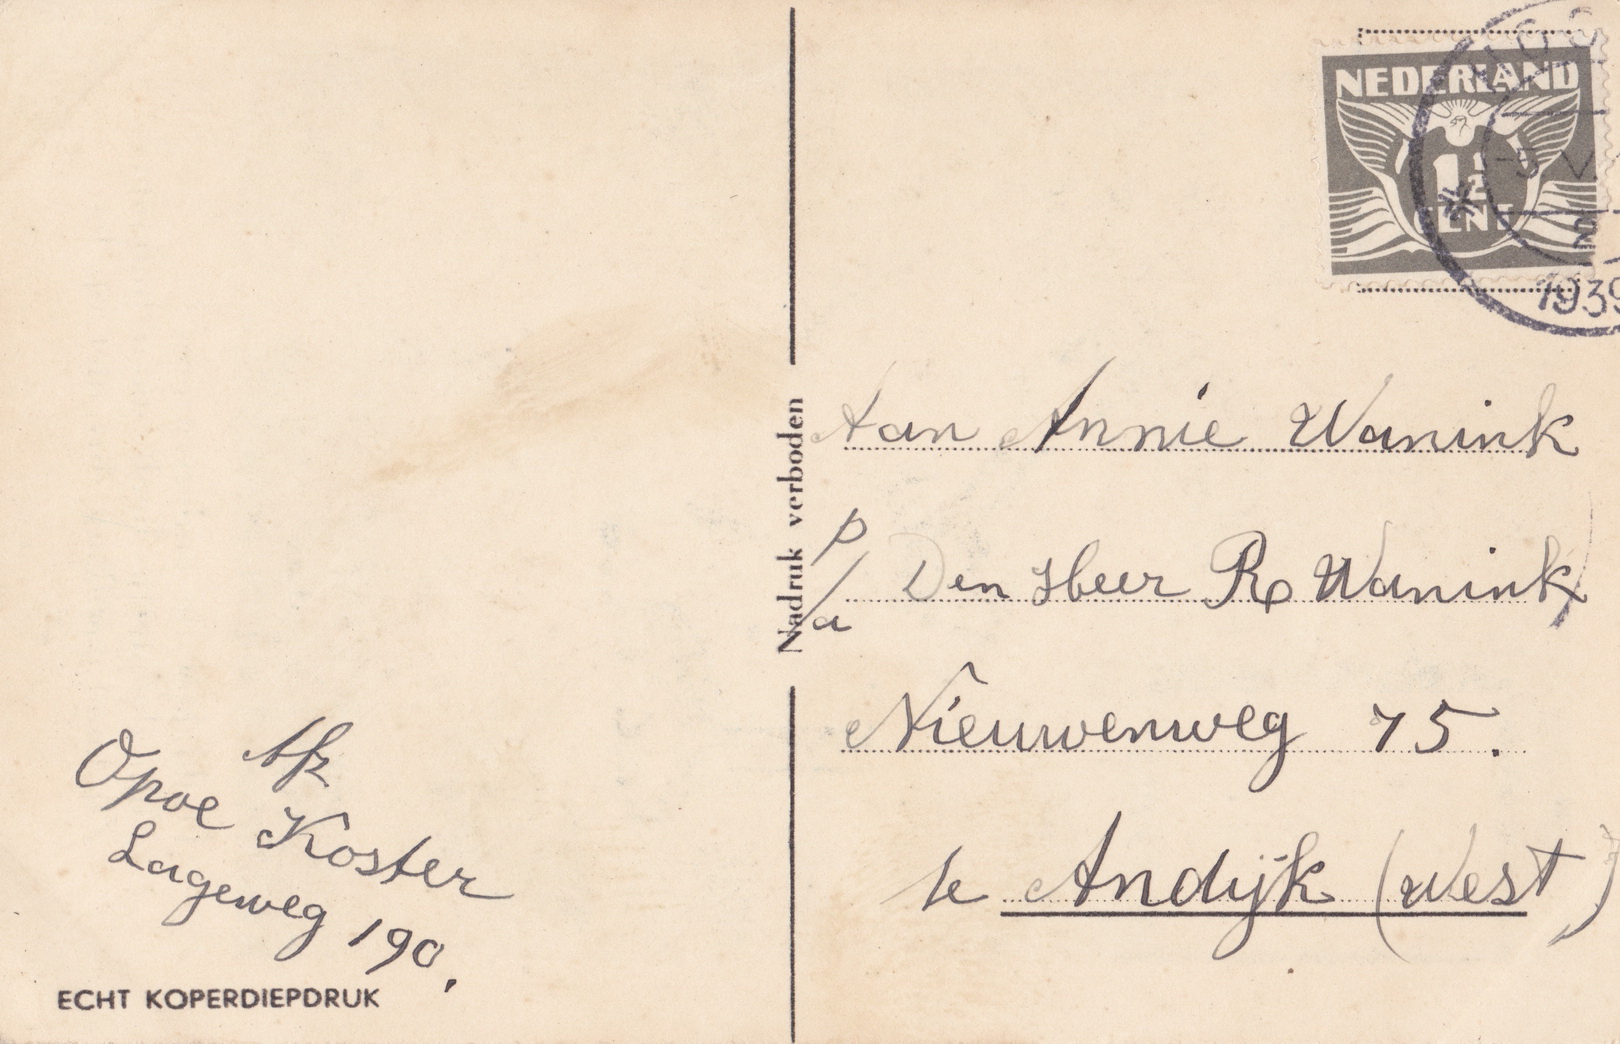 NEDERLAND
1½
CENT
-5 V
1939
Nadruk verboden
Aan Annie Wanink
p/a Den Heer R Wanink
Nieuwenweg 75.
te Andijk (West)
Afz
Opoe Koster
Lageweg 190.
ECHT KOPERDIEPDRUK